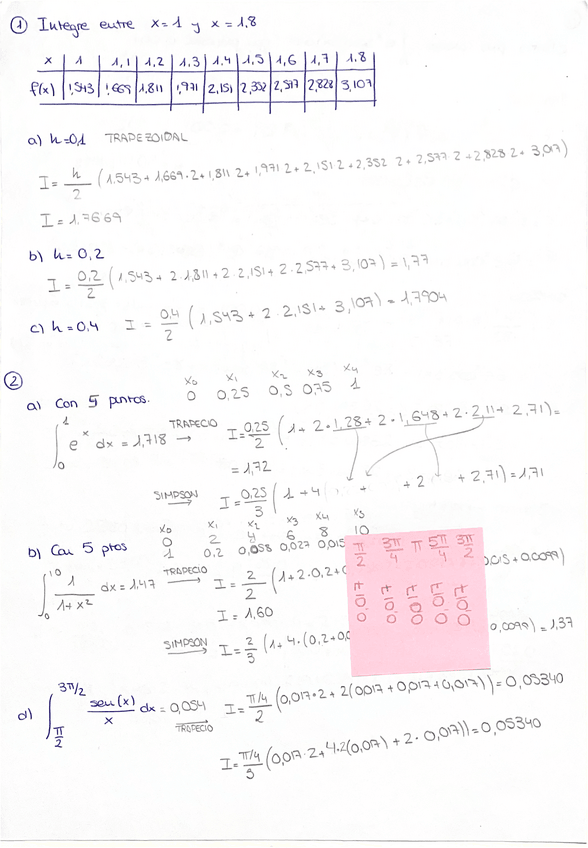 ① Integre entre x=1 y x=1,8
x 1 1,1 1,2 1,3 1,4 1,5 1,6 1,7 1.8
f(x) 1,543 1,669 1,811 1,971 2,151 2,352 2,577 2,828 3,107
a) h=0,1 TRAPEZOIDAL
I = h/2 (1.543+1,669·2+1,811 2+1,971 2+2,151 2+2,352 2+2,577 2+2,828 2+ 3,017)
I = 1.7669
b) h=0,2
I = 0,2/2 (1,543 + 2·1,811 + 2·2,151 + 2·2,577 + 3,107) = 1,77
c) h=0,4 I = 0,4/2 (1,543 + 2·2,151 + 3,107) = 1,7904
②
x₀ x₁ x₂ x₃ x₄
a) Con 5 puntos. 0 0,25 0,5 0,75 1
∫₀¹ eˣ dx = 1,718 TRAPECIO → I = 0,25/2 (1 + 2·1,28 + 2·1,648 + 2·2,11 + 2,71) =
= 1,72
SIMPSON → I = 0,25/3 (1 + 4( + + 2 + 2,71) = 1,71
x₀ x₁ x₂ x₃ x₄ x₅
0 2 4 6 8 10
b) Con 5 ptos 1 0,2 0,058 0,027 0,015
∫₀¹⁰ 1/(1+x²) dx = 1,47 TRAPECIO → I = 2/2 (1+2·0,2+ 0,015 + 0.0099)
I = 1,60
SIMPSON → I = 2/3 (1+ 4·(0,2+0,0 0,0099) = 1,37
π/2 3π/4 π 5π/4 3π/2
0,017 0,017 0,017 0,017 0,017
d) ∫ π/2 3π/2 sen(x)/x dx = 0,054 TRAPECIO → I = π/4/2 (0,017·2 + 2(0,017 + 0,017 + 0,017)) = 0,05340
I = π/4/3 (0,017·2 + 4·2(0,017) + 2·0,017)) = 0,05340